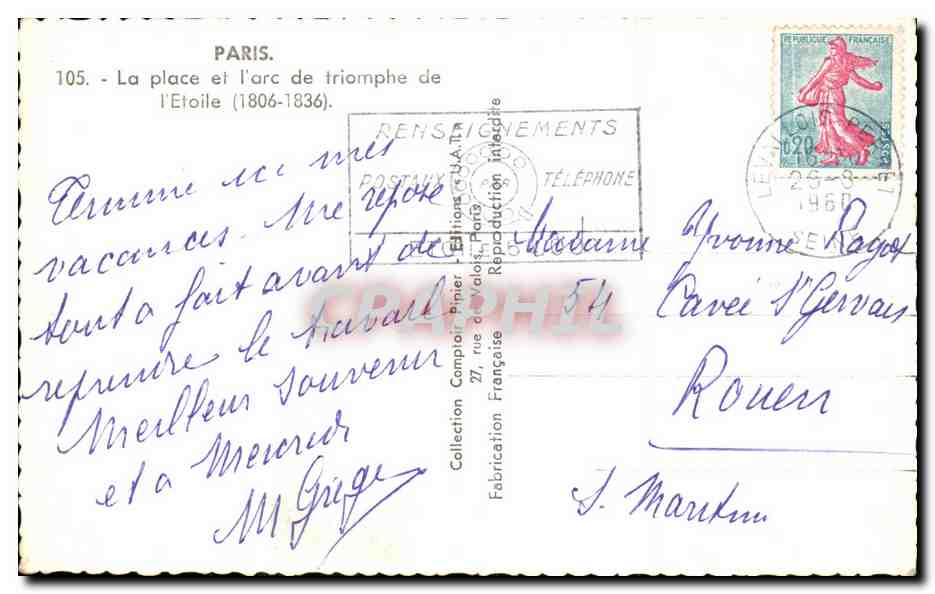 PARIS.
105. - La place et l'arc de triomphe de
l'Etoile (1806-1836).
Termine ici mes
vacances. Me repose
tout a fait avant de
reprendre le travail
Meilleur souvenir
et a Mercredi
M Griège
Collection Comptoir Pipier - Editions U.A.T.
27, rue de Valois, Paris.
Fabrication Française Reproduction interdite
RENSEIGNEMENTS
POSTAUX PAR TÉLÉPHONE
REPUBLIQUE FRANÇAISE
0,20
POSTES
LEVALLOIS-PERRET
26-8
1960
SEINE
Madame Yvonne Ragot
54 Cavée St Gervais
Rouen
S. Maritime
CPAPHIL